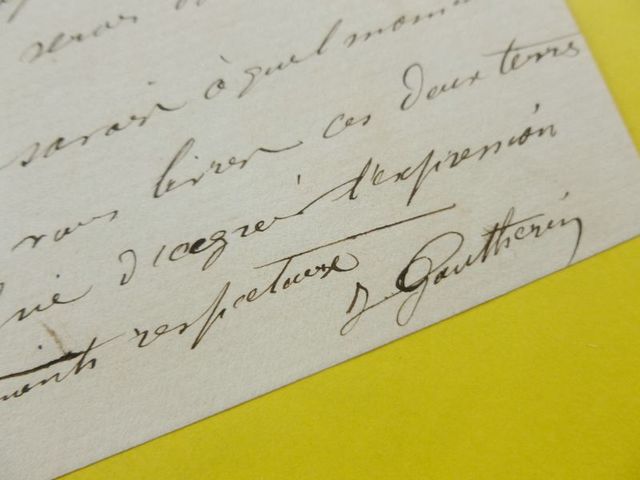 serais
savoir à quel mom
vous livrer ces deux terres
d'agréer l'expression
ments respectueux
J Gautherin